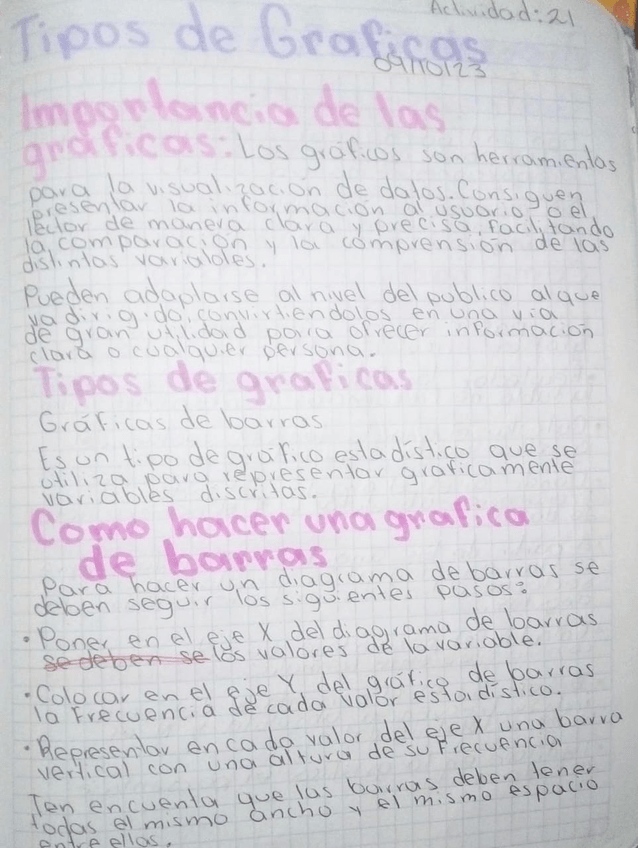 Actividad: 21
Tipos de Graficas
09/10/23
Importancia de las
graficas: Los gráficos son herramientas
para la visualización de datos. Consiguen
presentar la información al usuario o el
lector de manera clara y precisa, facilitando
la comparación y la comprensión de las
distintas variables.
Pueden adaptarse al nivel del publico al que
va dirigido, convirtiendolos en una via
de gran utilidad para ofrecer información
clara a cualquier persona.
Tipos de graficas
Gráficas de barras
Es un tipo de gráfico estadístico que se
utiliza para representar graficamente
variables discritas.
Como hacer una grafica
de barras
Para hacer un diagrama de barras se
deben seguir los siguientes pasos:
• Poner en el eje X del diagrama de barras
se deben se los valores de la variable.
• Colocar en el eje Y del gráfico de barras
la Frecuencia de cada valor estadístico.
• Representar en cada valor del eje X una barra
vertical con una altura de su Frecuencia
Ten encuenta que las barras deben tener
todas el mismo ancho y el mismo espacio
entre ellas.